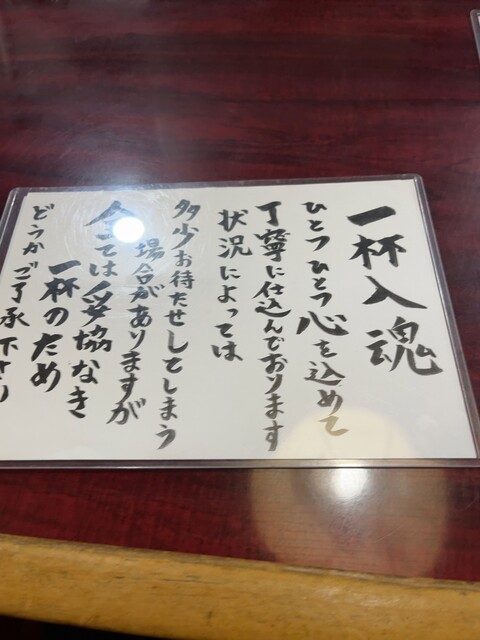 一杯入魂
ひとつひとつ心を込めて
丁寧に仕込んでおります
状況によっては
多少お待たせしてしまう
場合がありますが
全ては妥協なき
一杯のため
どうかご了承下さい